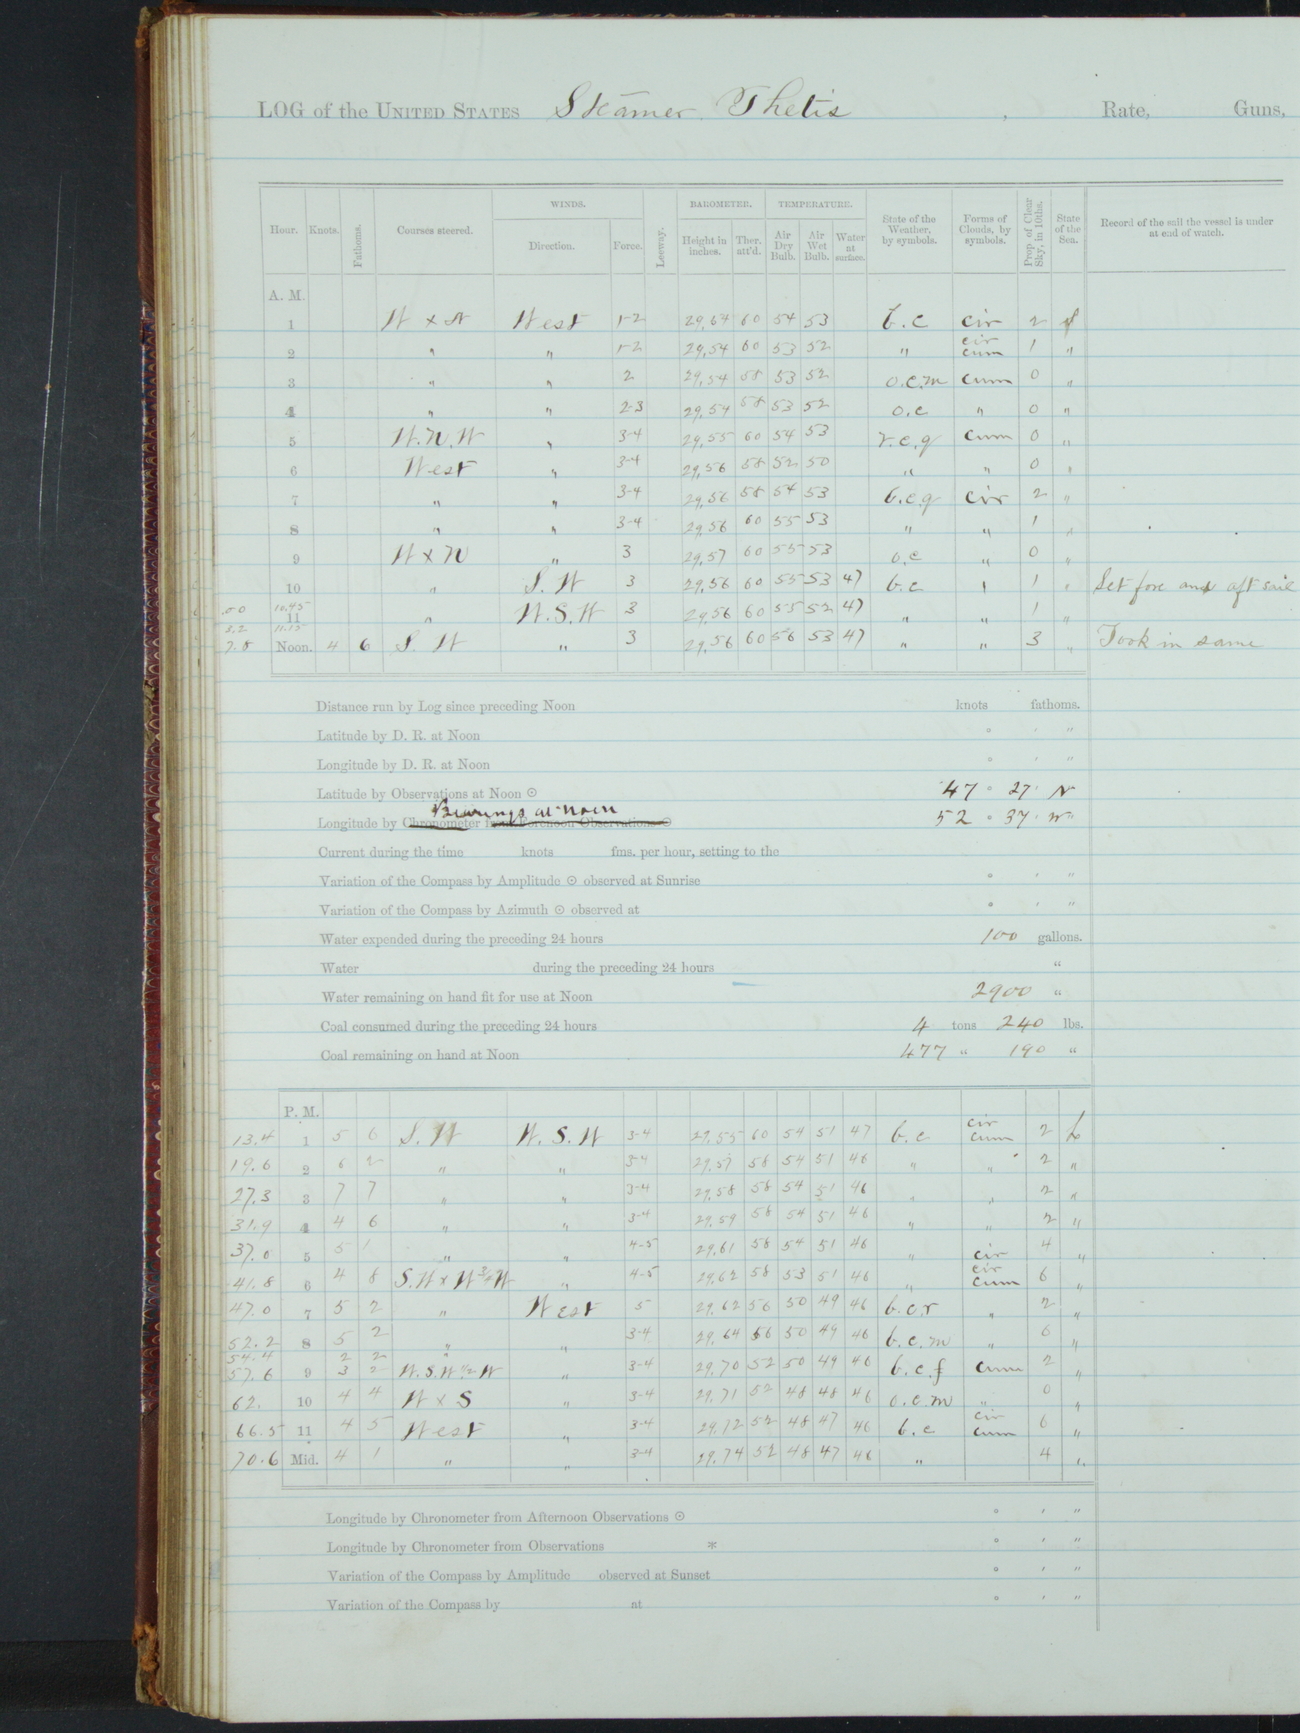 LOG of the UNITED STATES Steamer Thetis , Rate, Guns,
WINDS. BAROMETER. TEMPERATURE.
Hour. Knots. Fathoms. Courses steered. Direction. Force. Leeway. Height in inches. Ther. att'd. Air Dry Bulb. Air Wet Bulb. Water at surface. State of the Weather, by symbols. Forms of Clouds, by symbols. Prop. of Clear Sky, in 10ths. State of the Sea. Record of the sail the vessel is under at end of watch.
A. M.
1 W x West 1-2 29,64 60 54 53 b.c cir 2
2 " " 1-2 29,54 60 53 52 " cir cum 1 "
3 " " 2 29,54 58 53 52 o.c.m cum 0 "
4 " " 2-3 29,54 58 53 52 o.c " 0 "
5 W.N.W " 3-4 29,55 60 54 53 r.c.q cum 0 "
6 West " 3-4 29,56 58 52 50 " " 0 "
7 " " 3-4 29,56 58 54 53 b.c.q cir 2 "
8 " " 3-4 29,56 60 55 53 " " 1 "
9 W x N " 3 29,57 60 55 53 o.c " 0 "
10 " S. W 3 29,56 60 55 53 47 b.c " 1 " Set fore and aft sail
.00 10.45 11 " W.S.W 3 29,56 60 55 52 47 " " 1 "
3,2 11.15
7.8 Noon. 4 6 S. W " 3 29,56 60 56 53 47 " " 3 " Took in same
Distance run by Log since preceding Noon knots fathoms.
Latitude by D. R. at Noon ° ' "
Longitude by D. R. at Noon ° ' "
Latitude by Observations at Noon ⊙ 47 ° 27 ' N
Bearings at noon
Longitude by Chronometer from Forenoon Observations ⊙ 52 ° 37 ' W "
Current during the time knots fms. per hour, setting to the
Variation of the Compass by Amplitude ⊙ observed at Sunrise ° ' "
Variation of the Compass by Azimuth ⊙ observed at ° ' "
Water expended during the preceding 24 hours 100 gallons.
Water during the preceding 24 hours "
Water remaining on hand fit for use at Noon 2900 "
Coal consumed during the preceding 24 hours 4 tons 240 lbs.
Coal remaining on hand at Noon 477 " 190 "
P. M.
13.4 1 5 6 S. W W. S. W 3-4 29,55 60 54 51 47 b.c cir cum 2
19.6 2 6 2 " " 3-4 29,57 58 54 51 46 " " 2 "
27.3 3 7 7 " " 3-4 29,58 58 54 51 46 " " 2 "
31.9 4 4 6 " " 3-4 29,59 58 54 51 46 " " 2 "
37.0 5 5 1 " " 4-5 29,61 58 54 51 46 " cir 4 "
41.8 6 4 8 S.W x W 3/4 W " 4-5 29,62 58 53 51 46 " cir cum 6 "
47.0 7 5 2 " West 5 29,62 56 50 49 46 b.c.r " 2 "
52.2 8 5 2 " " 3-4 29,64 56 50 49 46 b.c.m " 6 "
54.4 2 2 "
57.6 9 3 2 W.S.W 1/2 W " 3-4 29,70 52 50 49 46 b.c.f cum 2 "
62. 10 4 4 W x S " 3-4 29,71 52 48 48 46 o.c.m " 0 "
66.5 11 4 5 West " 3-4 29,72 52 48 47 46 b.c cir cum 6 "
70.6 Mid. 4 1 " " 3-4 29,74 52 48 47 46 " 4 "
Longitude by Chronometer from Afternoon Observations ⊙ ° ' "
Longitude by Chronometer from Observations * ° ' "
Variation of the Compass by Amplitude observed at Sunset ° ' "
Variation of the Compass by at ° ' "